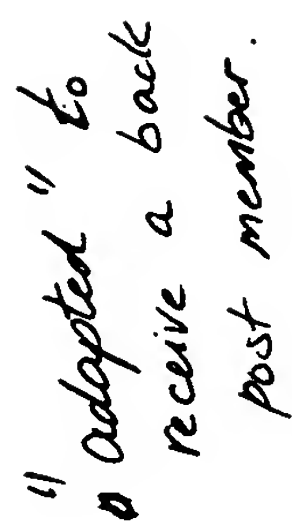 "adapted" to
receive a back
post member.